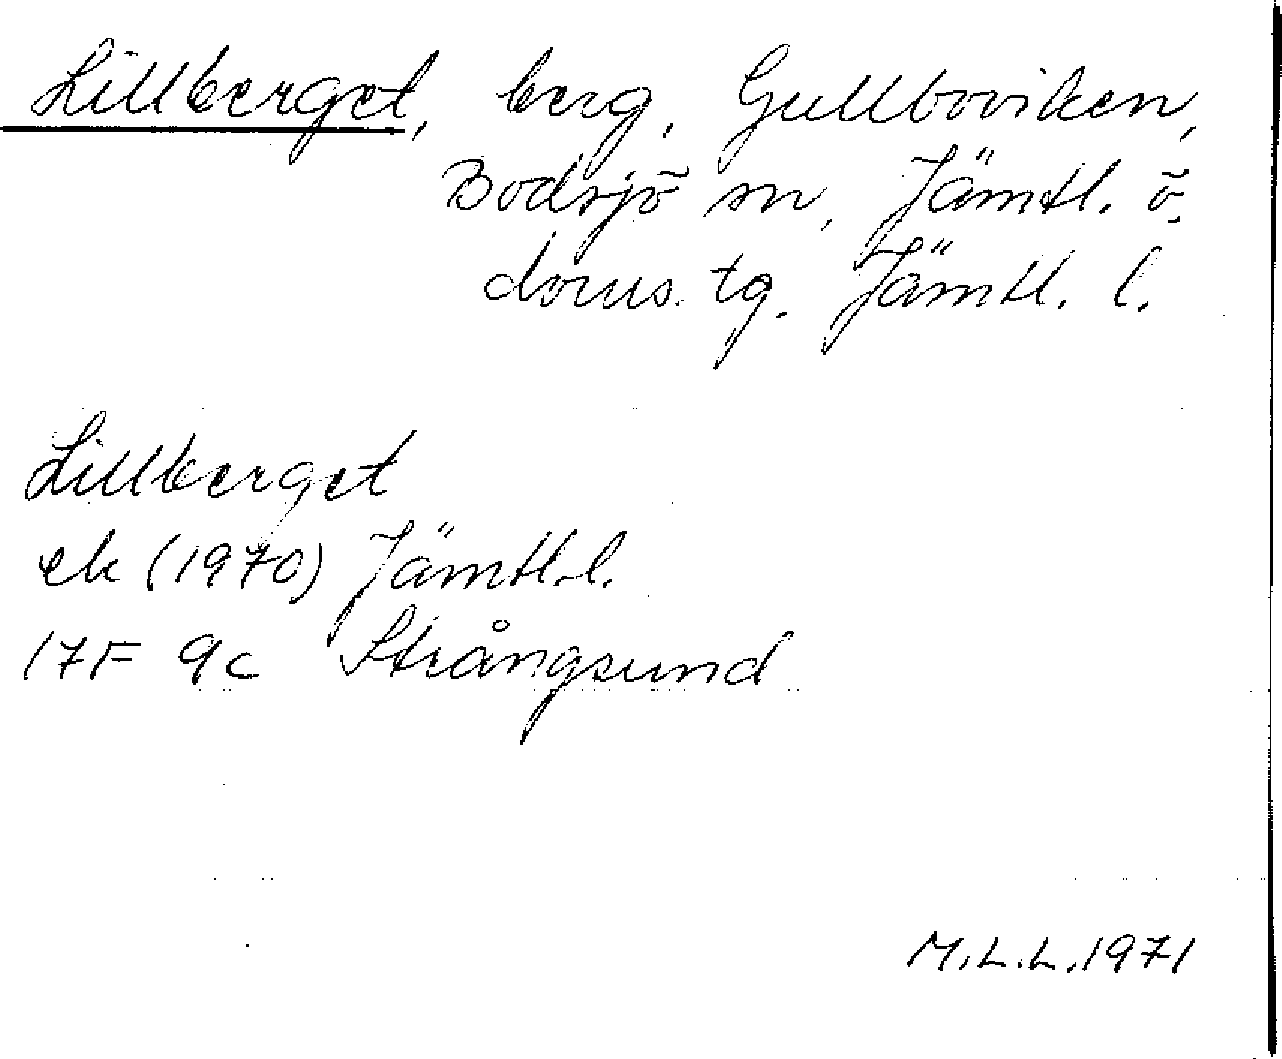 Lillberget, berg, Gullboviken,
Bodsjö sn, Jämtl. ö.
doms. tg. Jämtl. l.
Lillberget
ek (1970) Jämtl. l.
17F 9c Strångsund
M.L.L. 1971